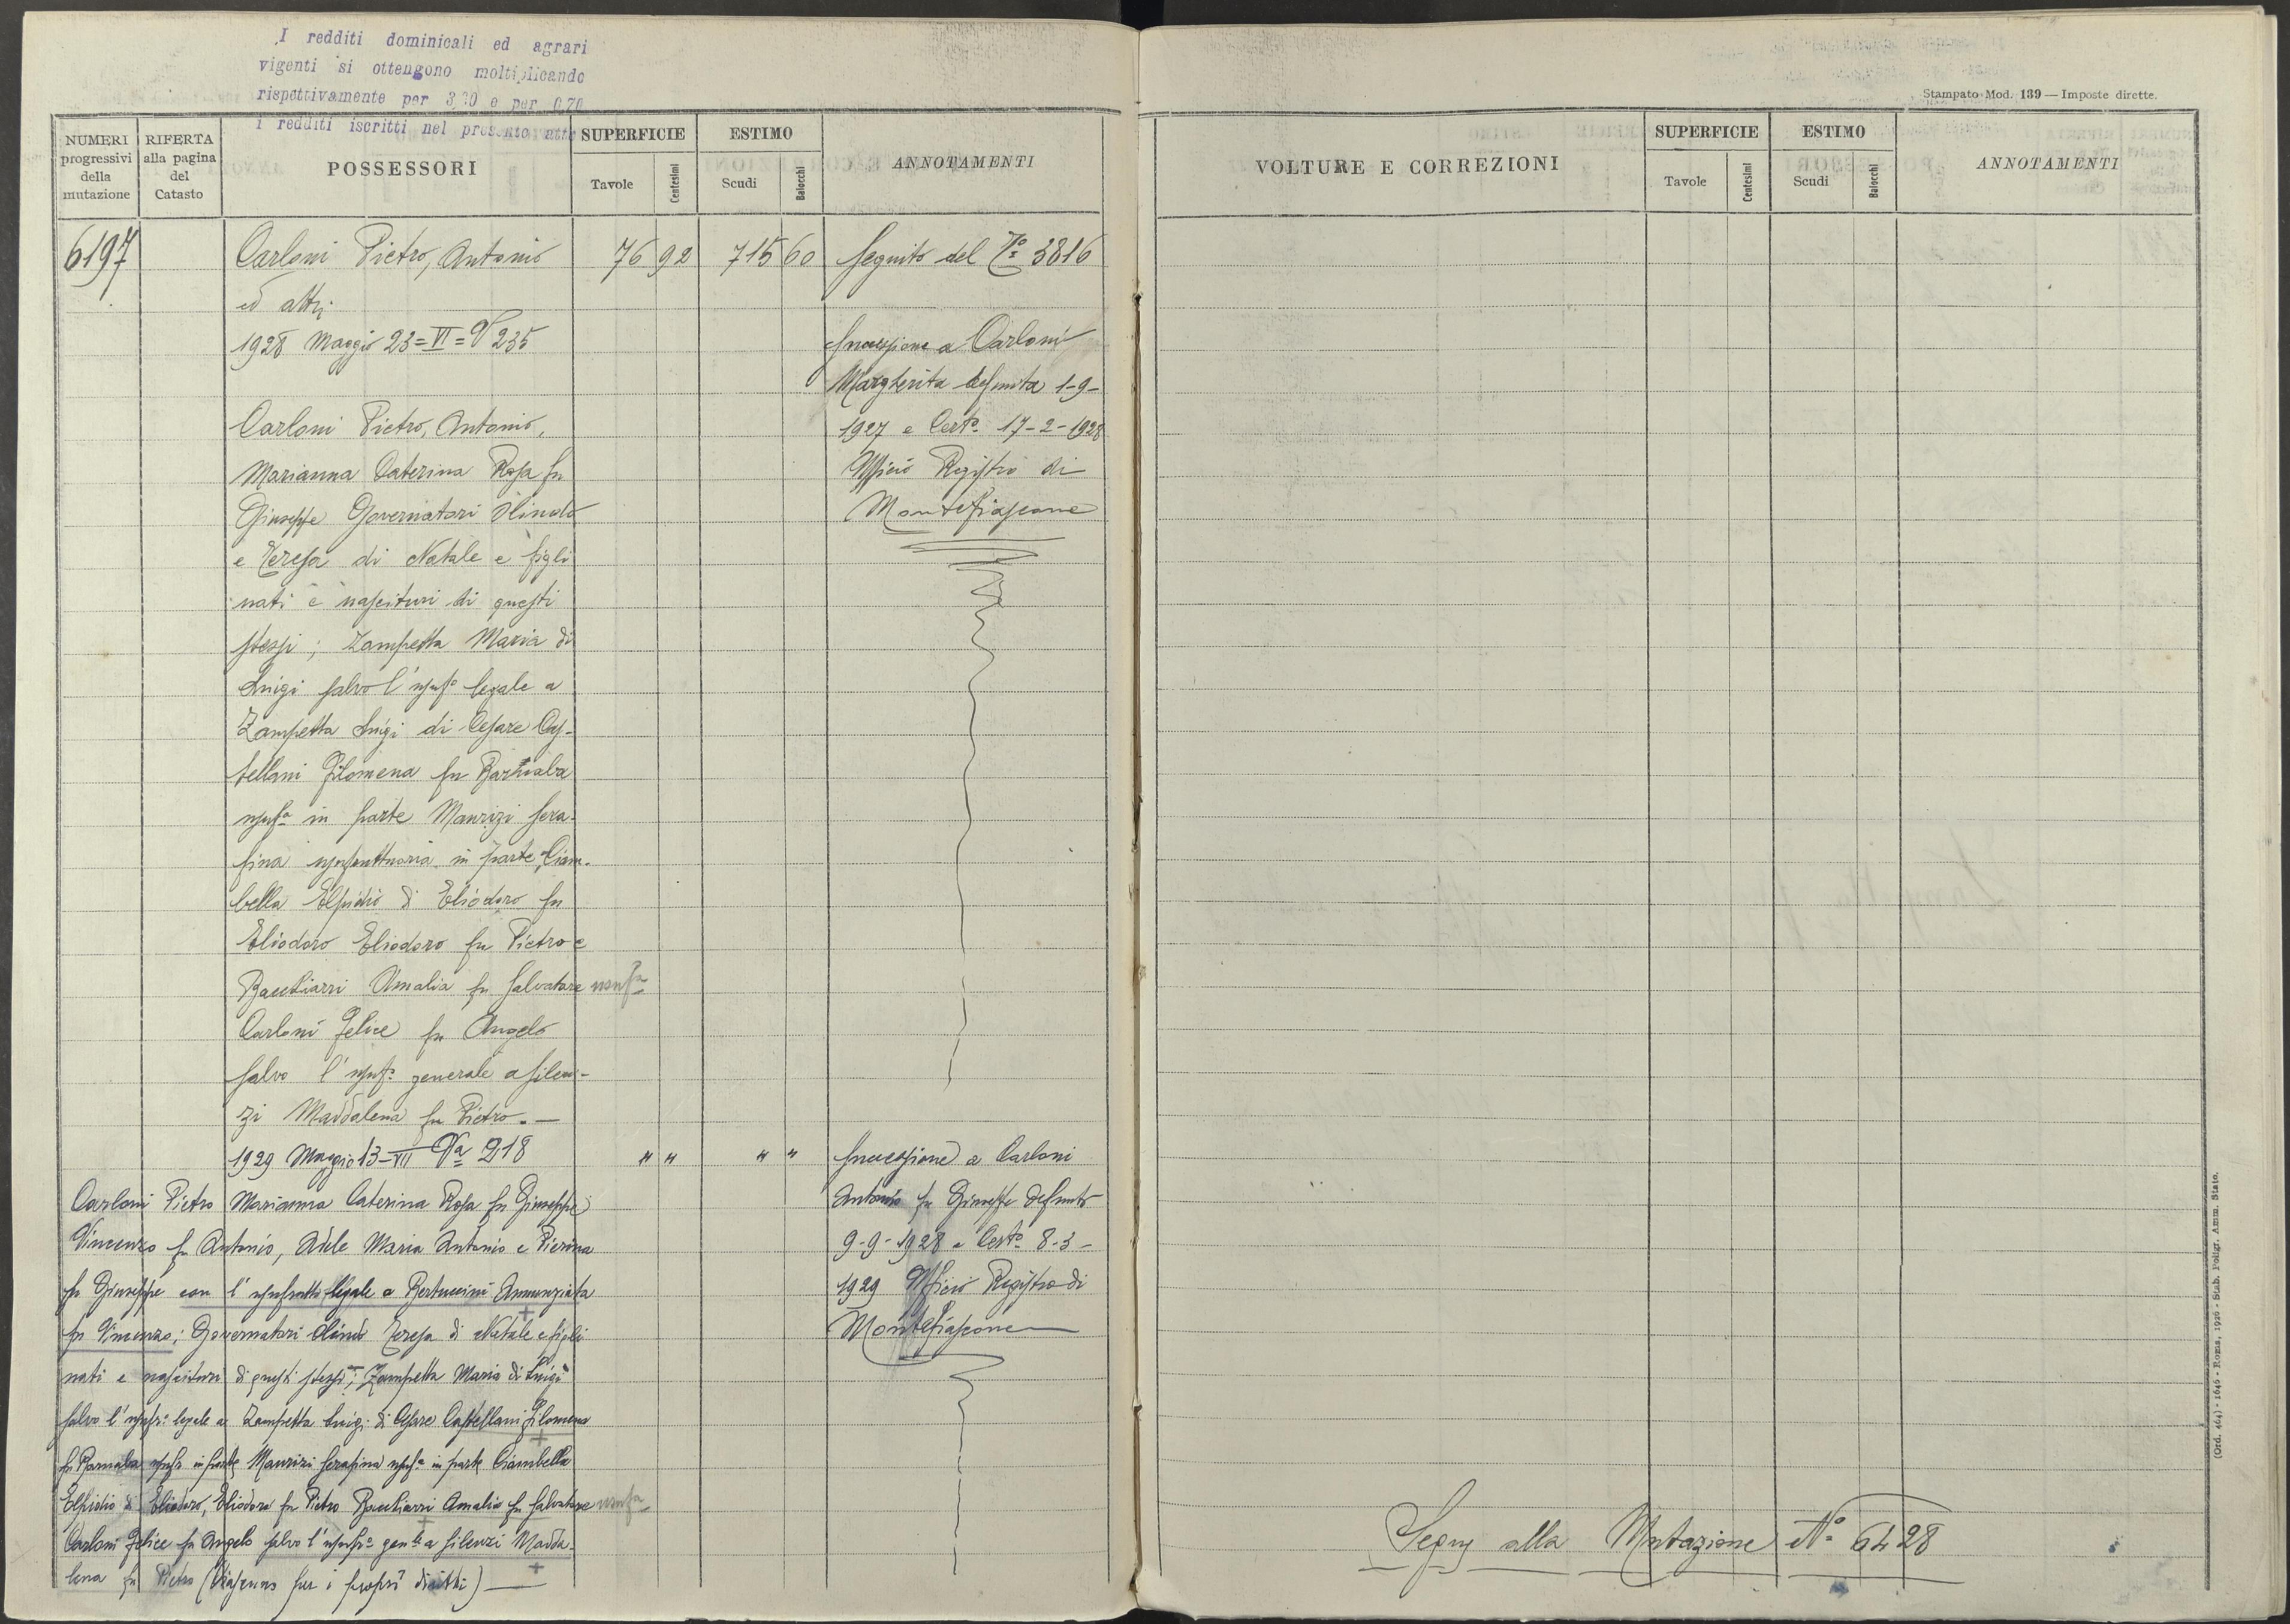 I redditi dominicali ed agrari
vigenti si ottengono moltiplicando
rispettivamente per 3,30 e per 0,70
i redditi iscritti nel presente atto
Stampato Mod. 139 — Imposte dirette.
NUMERI progressivi della mutazione
RIFERTA alla pagina del Catasto
POSSESSORI
SUPERFICIE
Tavole
Centesimi
ESTIMO
Scudi
Baiocchi
ANNOTAMENTI
VOLTURE E CORREZIONI
SUPERFICIE
Tavole
Centesimi
ESTIMO
Scudi
Baiocchi
ANNOTAMENTI
6197 Carloni Pietro, Antonio 76 92 715 60 Seguito del N° 3816
ed altri
1928 Maggio 23=VI= V 235
Successione a Carloni
Margherita defunta 1-9-
1927 e Certo 17-2-1928
Ufficio Registro di
Montefiascone
Carloni Pietro, Antonio,
Marianna Caterina Rosa fu
Giuseppe Governatori Olindo
e Teresa di Natale e figli
nati e nascituri di questi
stessi; Zampetta Maria di
Luigi salvo l'usufo legale a
Zampetta Luigi di Cesare Cas-
tellani Filomena fu Barnaba
usufa in parte Maurizi Sera-
fina usufruttuaria in parte, Ciam-
bella Elpidio di Eliodoro fu
Eliodoro Eliodoro fu Pietro e
Bacchiarri Amalia fu Salvatore usufa
Carloni Felice fu Angelo
salvo l'usufo generale a Silen-
zi Maddalena fu Pietro. —
1929 Maggio 13-VII Va 218 " " " " Successione a Carloni
Antonio fu Giuseppe defunto
9-9-1928 e Certo 8-3-
1929 Ufficio Registro di
Montefiascone
Carloni Pietro Marianna Caterina Rosa fu Giuseppe
Vincenzo fu Antonio, Adele Maria Antonio e Pierina
fu Giuseppe con l'usufrutto legale a Bertuccini Annunziata
fu Vincenzo; Governatori Olindo Teresa di Natale e figli
nati e nascituri di questi stessi; Zampetta Maria di Luigi
salvo l'usufro legale a Zampetta Luigi di Cesare Castellani Filomena
fu Barnaba usufa in parte Maurizi Serafina usufa in parte Ciambella
Elpidio di Eliodoro, Eliodoro fu Pietro Bacchiarri Amalia fu Salvatore usufa
Carloni Felice fu Angelo salvo l'usufro genle a Silenzi Madda-
lena fu Pietro (Ciascuno per i propri diritti) —
Segue alla Mutazione N° 6428
(Ord. 464) - 1646 - Roma, 1926 - Stab. Poligr. Amm. Stato.